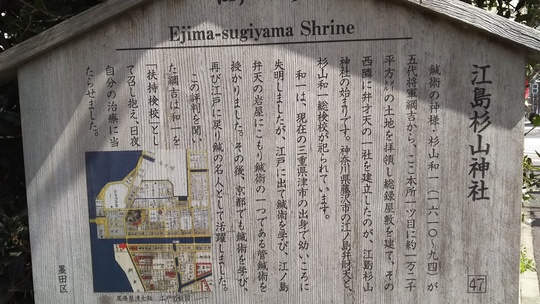 Ejima-sugiyama Shrine
江島杉山神社
鍼術の神様・杉山和一(一六一〇〜九四)が
五代将軍綱吉から、ここ本所一ツ目に約一万二千
平方の土地を拝領し総録屋敷を建て、その
西隣に弁才天の一社を建立したのが、江島杉山
神社の始まりです。神奈川県藤沢市の江ノ島弁財天と、
杉山和一総検校が祀られています。
和一は、現在の三重県津市の出身で幼いころに
失明しましたが、江戸に出て鍼術を学び、江ノ島
弁天の岩屋にこもり鍼術の一つである管鍼術を
授かりました。その後、京都でも鍼術を学び、
再び江戸に戻り鍼の名人として活躍しました。
この評判を聞い
た綱吉は和一を
「扶持検校」とし
て召し抱え、日夜、
自分の治療に当
たらせました。
尾張屋清七版 江戸切絵図
墨田区
47